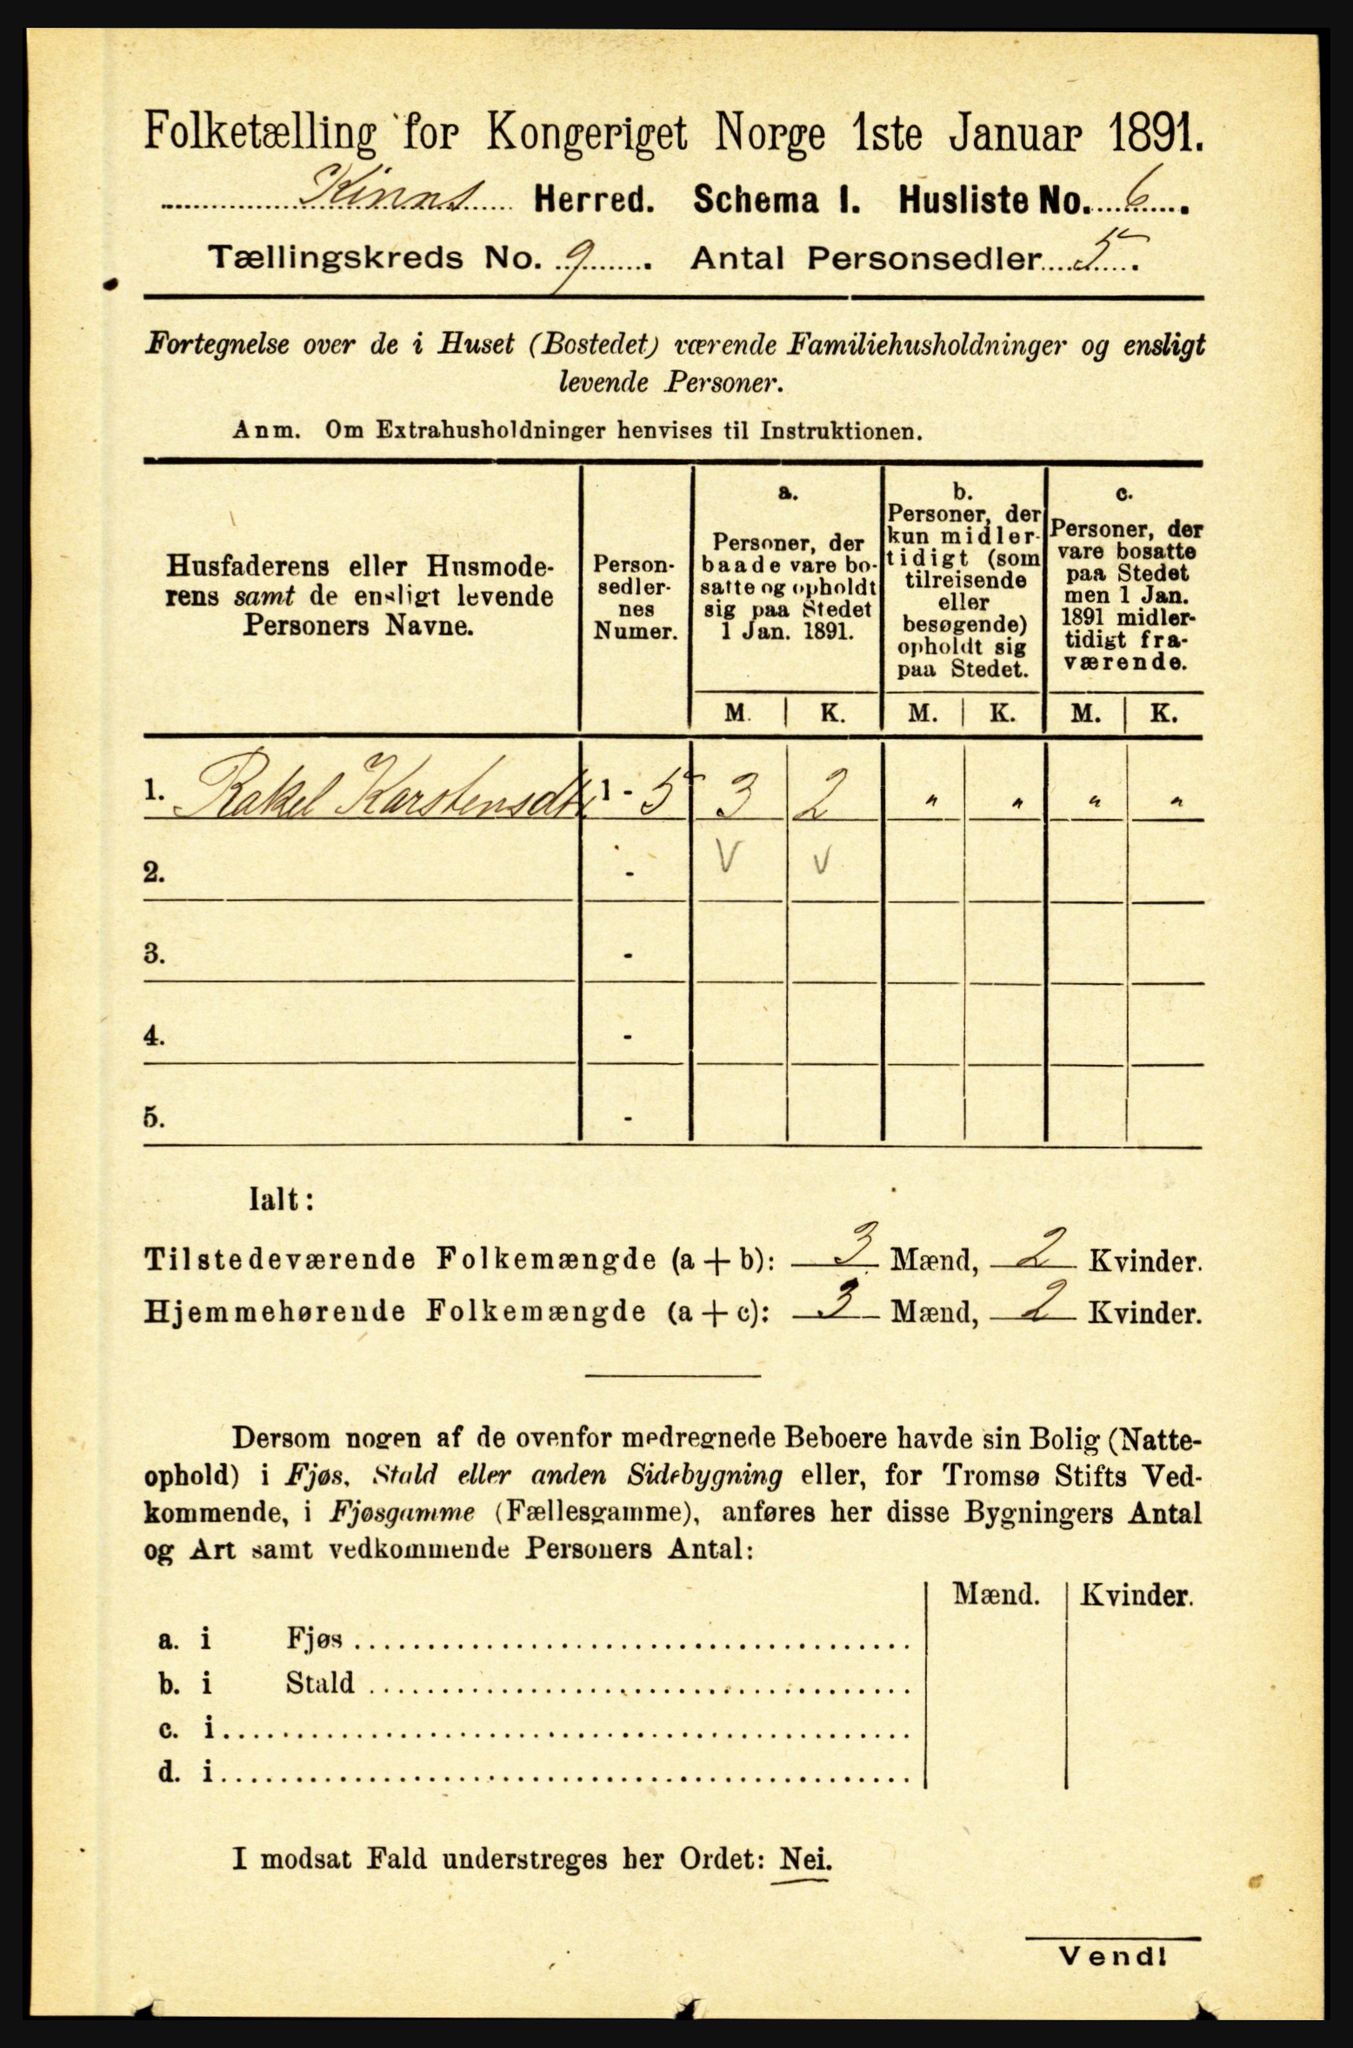 Folketælling for Kongeriget Norge 1ste Januar 1891.
Kinns Herred. Schema I. Husliste No. 6.
Tællingskreds No. 9. Antal Personsedler 5.
Fortegnelse over de i Huset (Bostedet) værende Familiehusholdninger og ensligt
levende Personer.
Anm. Om Extrahusholdninger henvises til Instruktionen.
Husfaderens eller Husmode-
rens samt de ensligt levende
Personers Navne.
Person-
sedler-
nes
Numer.
a.
Personer, der
baade vare bo-
satte og opholdt
sig paa Stedet
1 Jan. 1891.
b.
Personer, der
kun midler-
tidigt (som
tilreisende
eller
besøgende)
opholdt sig
paa Stedet.
c.
Personer, der
vare bosatte
paa Stedet
men 1 Jan.
1891 midler-
tidigt fra-
værende.
M. K. M. K. M. K.
1. Rakel Karstensdtr 1 - 5 3 2 " " " "
2. - V V
3. -
4. -
5. -
Ialt:
Tilstedeværende Folkemængde (a + b): 3 Mænd, 2 Kvinder.
Hjemmehørende Folkemængde (a + c): 3 Mænd, 2 Kvinder.
Dersom nogen af de ovenfor medregnede Beboere havde sin Bolig (Natte-
ophold) i Fjøs, Stald eller anden Sidebygning eller, for Tromsø Stifts Ved-
kommende, i Fjøsgamme (Fællesgamme), anføres her disse Bygningers Antal
og Art samt vedkommende Personers Antal:
Mænd. Kvinder.
a. i Fjøs
b. i Stald
c. i
d. i
I modsat Fald understreges her Ordet: Nei.
Vend!